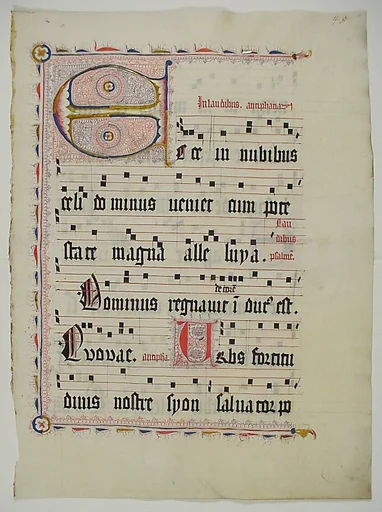 In laudibus. antiphana
Ecce in nubibus
celi dominus veniet cum pote
state magna alle luya. Lau
dibus
psalmus.
Dominus regnavit
Evovae. antipha. Urbs fortitu
dinis nostre syon salvator po